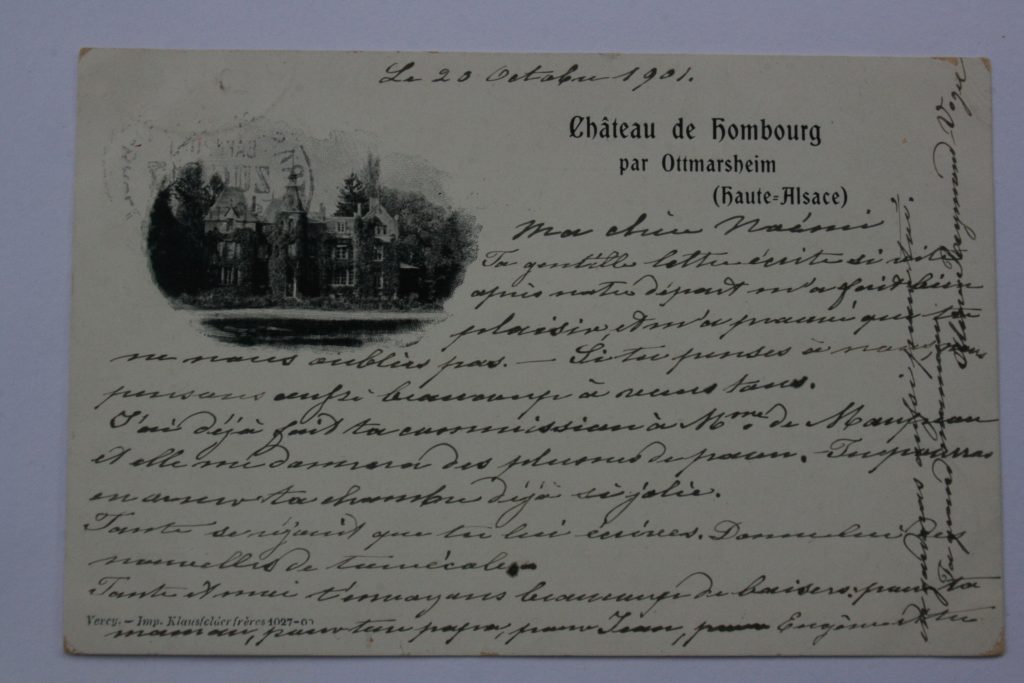 Le 20 Octobre 1901.
Château de Hombourg
par Ottmarsheim
(Haute-Alsace)
Ma chère Noémi
Ta gentille lettre écrite si vite
après notre départ m'a fait bien
plaisir et m'a prouvé que tu
ne nous oublies pas. — Si tu penses à nous, nous
pensons aussi beaucoup à vous tous.
J'ai déjà fait ta commission à Mme. de
et elle me donnera des plumes de paon. Tu pourras
en orner ta chambre déjà si jolie.
Tante se réjouit que tu lui écrives. Donne lui
nouvelles de ton école.
Tante et moi t'envoyons beaucoup de baisers: pour ta
maman, pour ton papa, pour Jean, pour Eugène et
Vevey. — Imp. Klausfelder frères 1027-00
aussi
Ta grand maman
Raymond Vogel